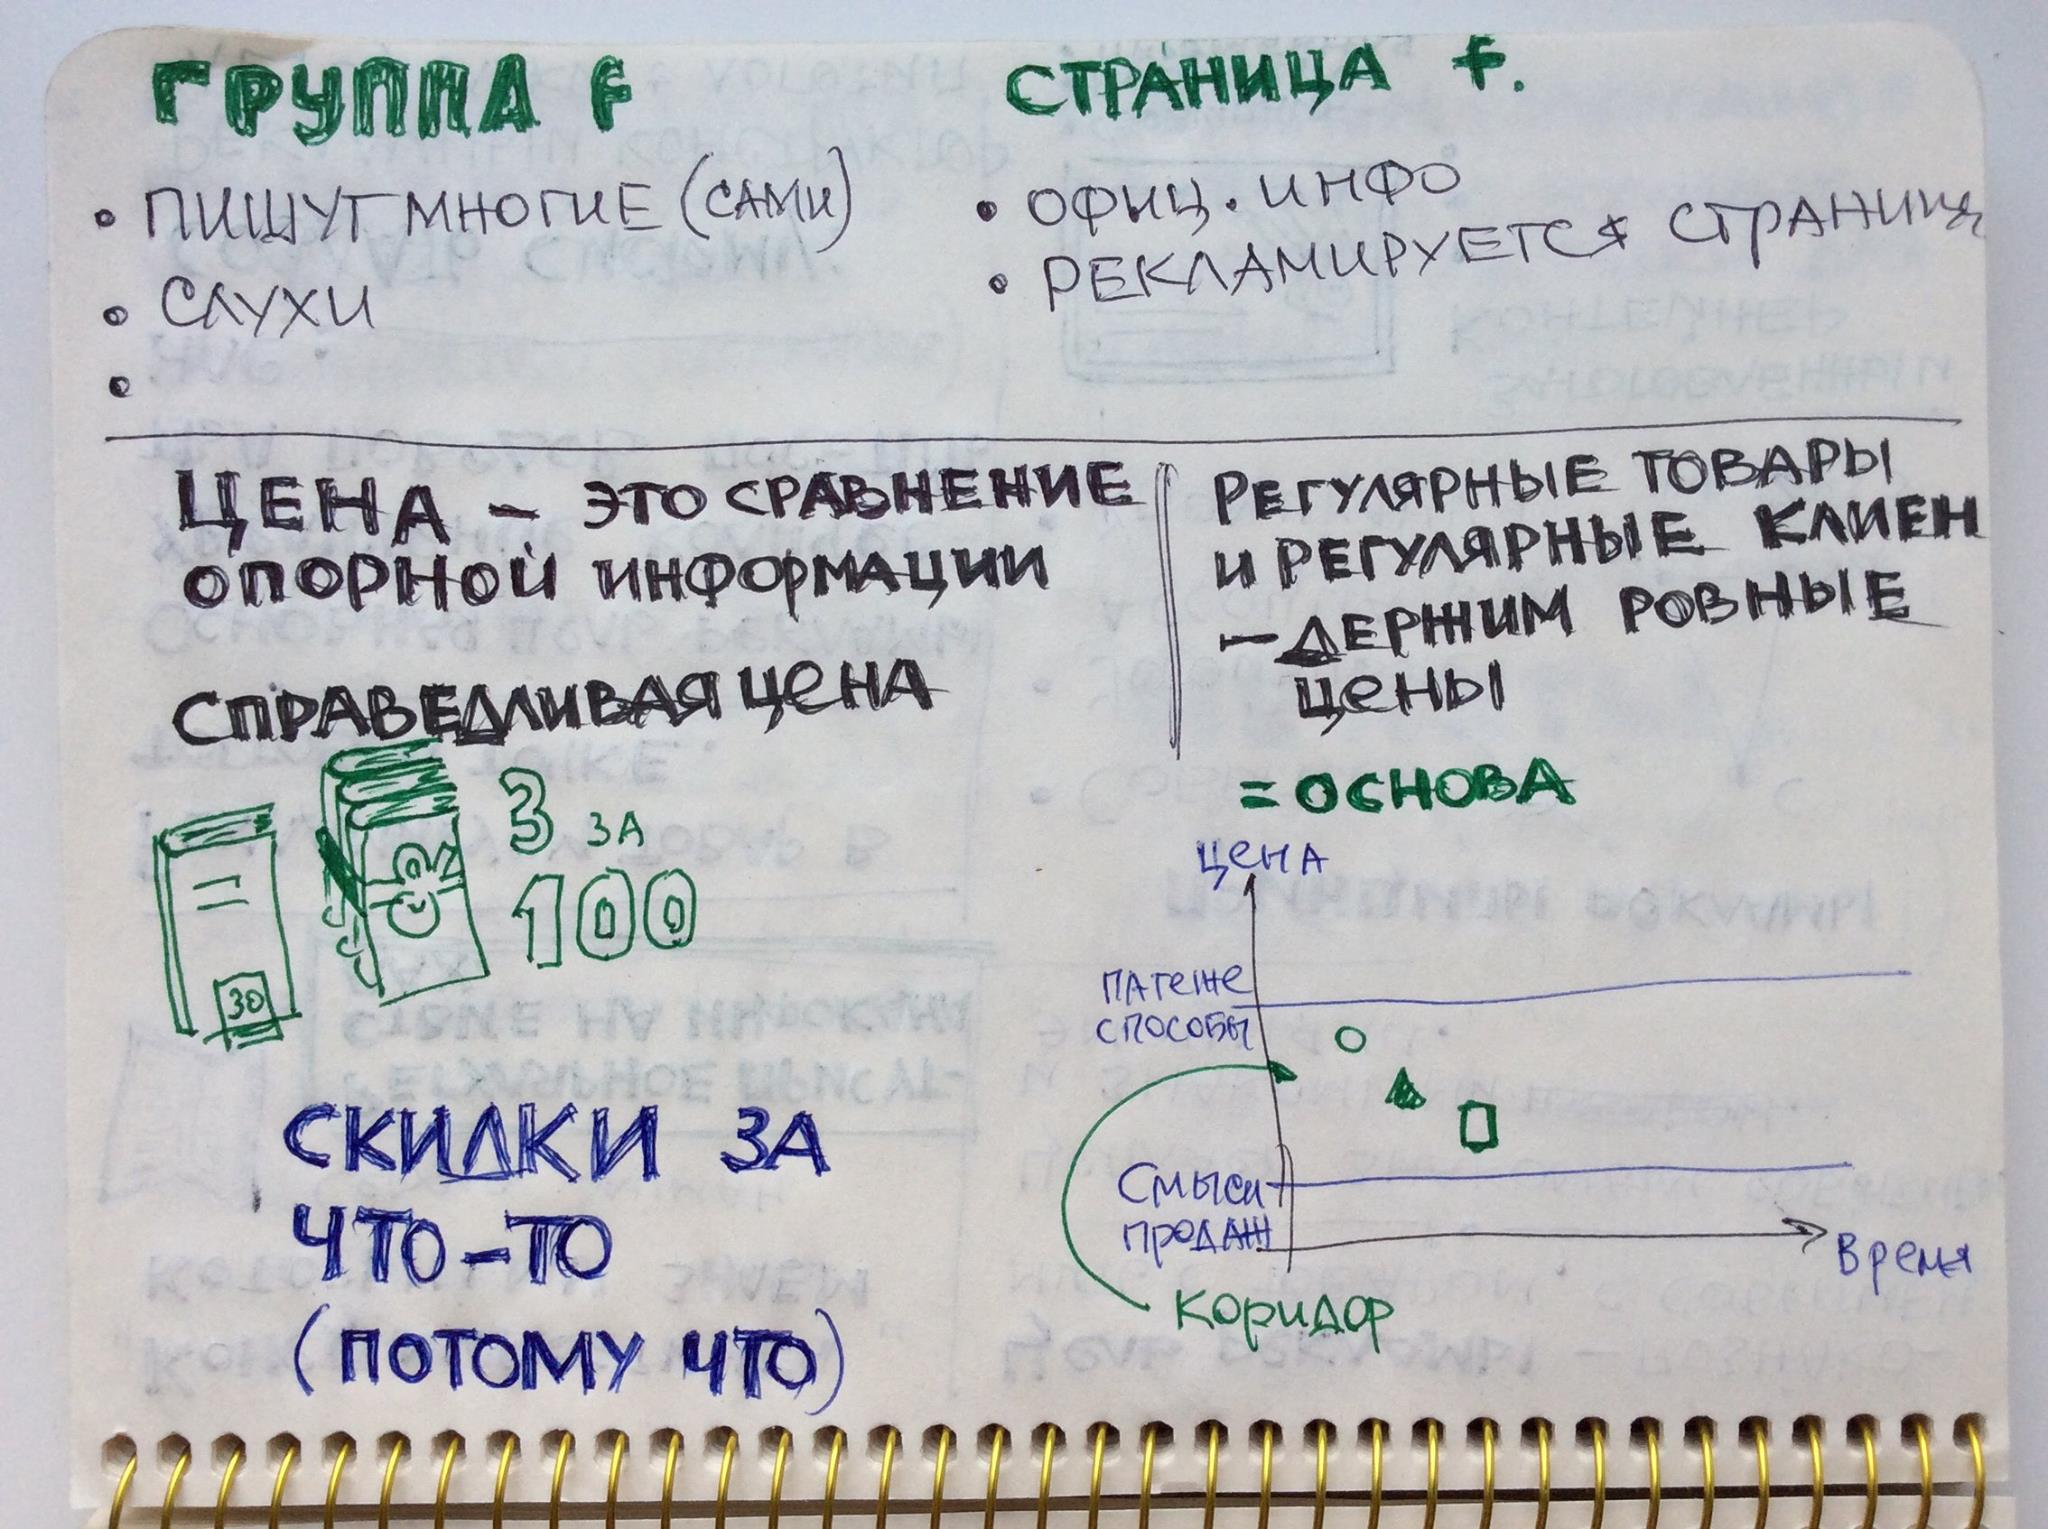 ГРУППА f
• ПИШУТ МНОГИЕ (САМИ)
• СЛУХИ
•
СТРАНИЦА f.
• ОФИЦ. ИНФО
• РЕКЛАМИРУЕТСЯ СТРАНИЦА
ЦЕНА – ЭТО СРАВНЕНИЕ
ОПОРНОЙ ИНФОРМАЦИИ
СПРАВЕДЛИВАЯ ЦЕНА
30
3 ЗА
100
СКИДКИ ЗА
ЧТО-ТО
(ПОТОМУ ЧТО)
РЕГУЛЯРНЫЕ ТОВАРЫ
И РЕГУЛЯРНЫЕ КЛИЕН
– ДЕРЖИМ РОВНЫЕ
ЦЕНЫ
= ОСНОВА
ЦЕНА
ПАТЕЖЕ
СПОСОБЫ
СМЫСЛ
ПРОДАЖ
Время
Коридор